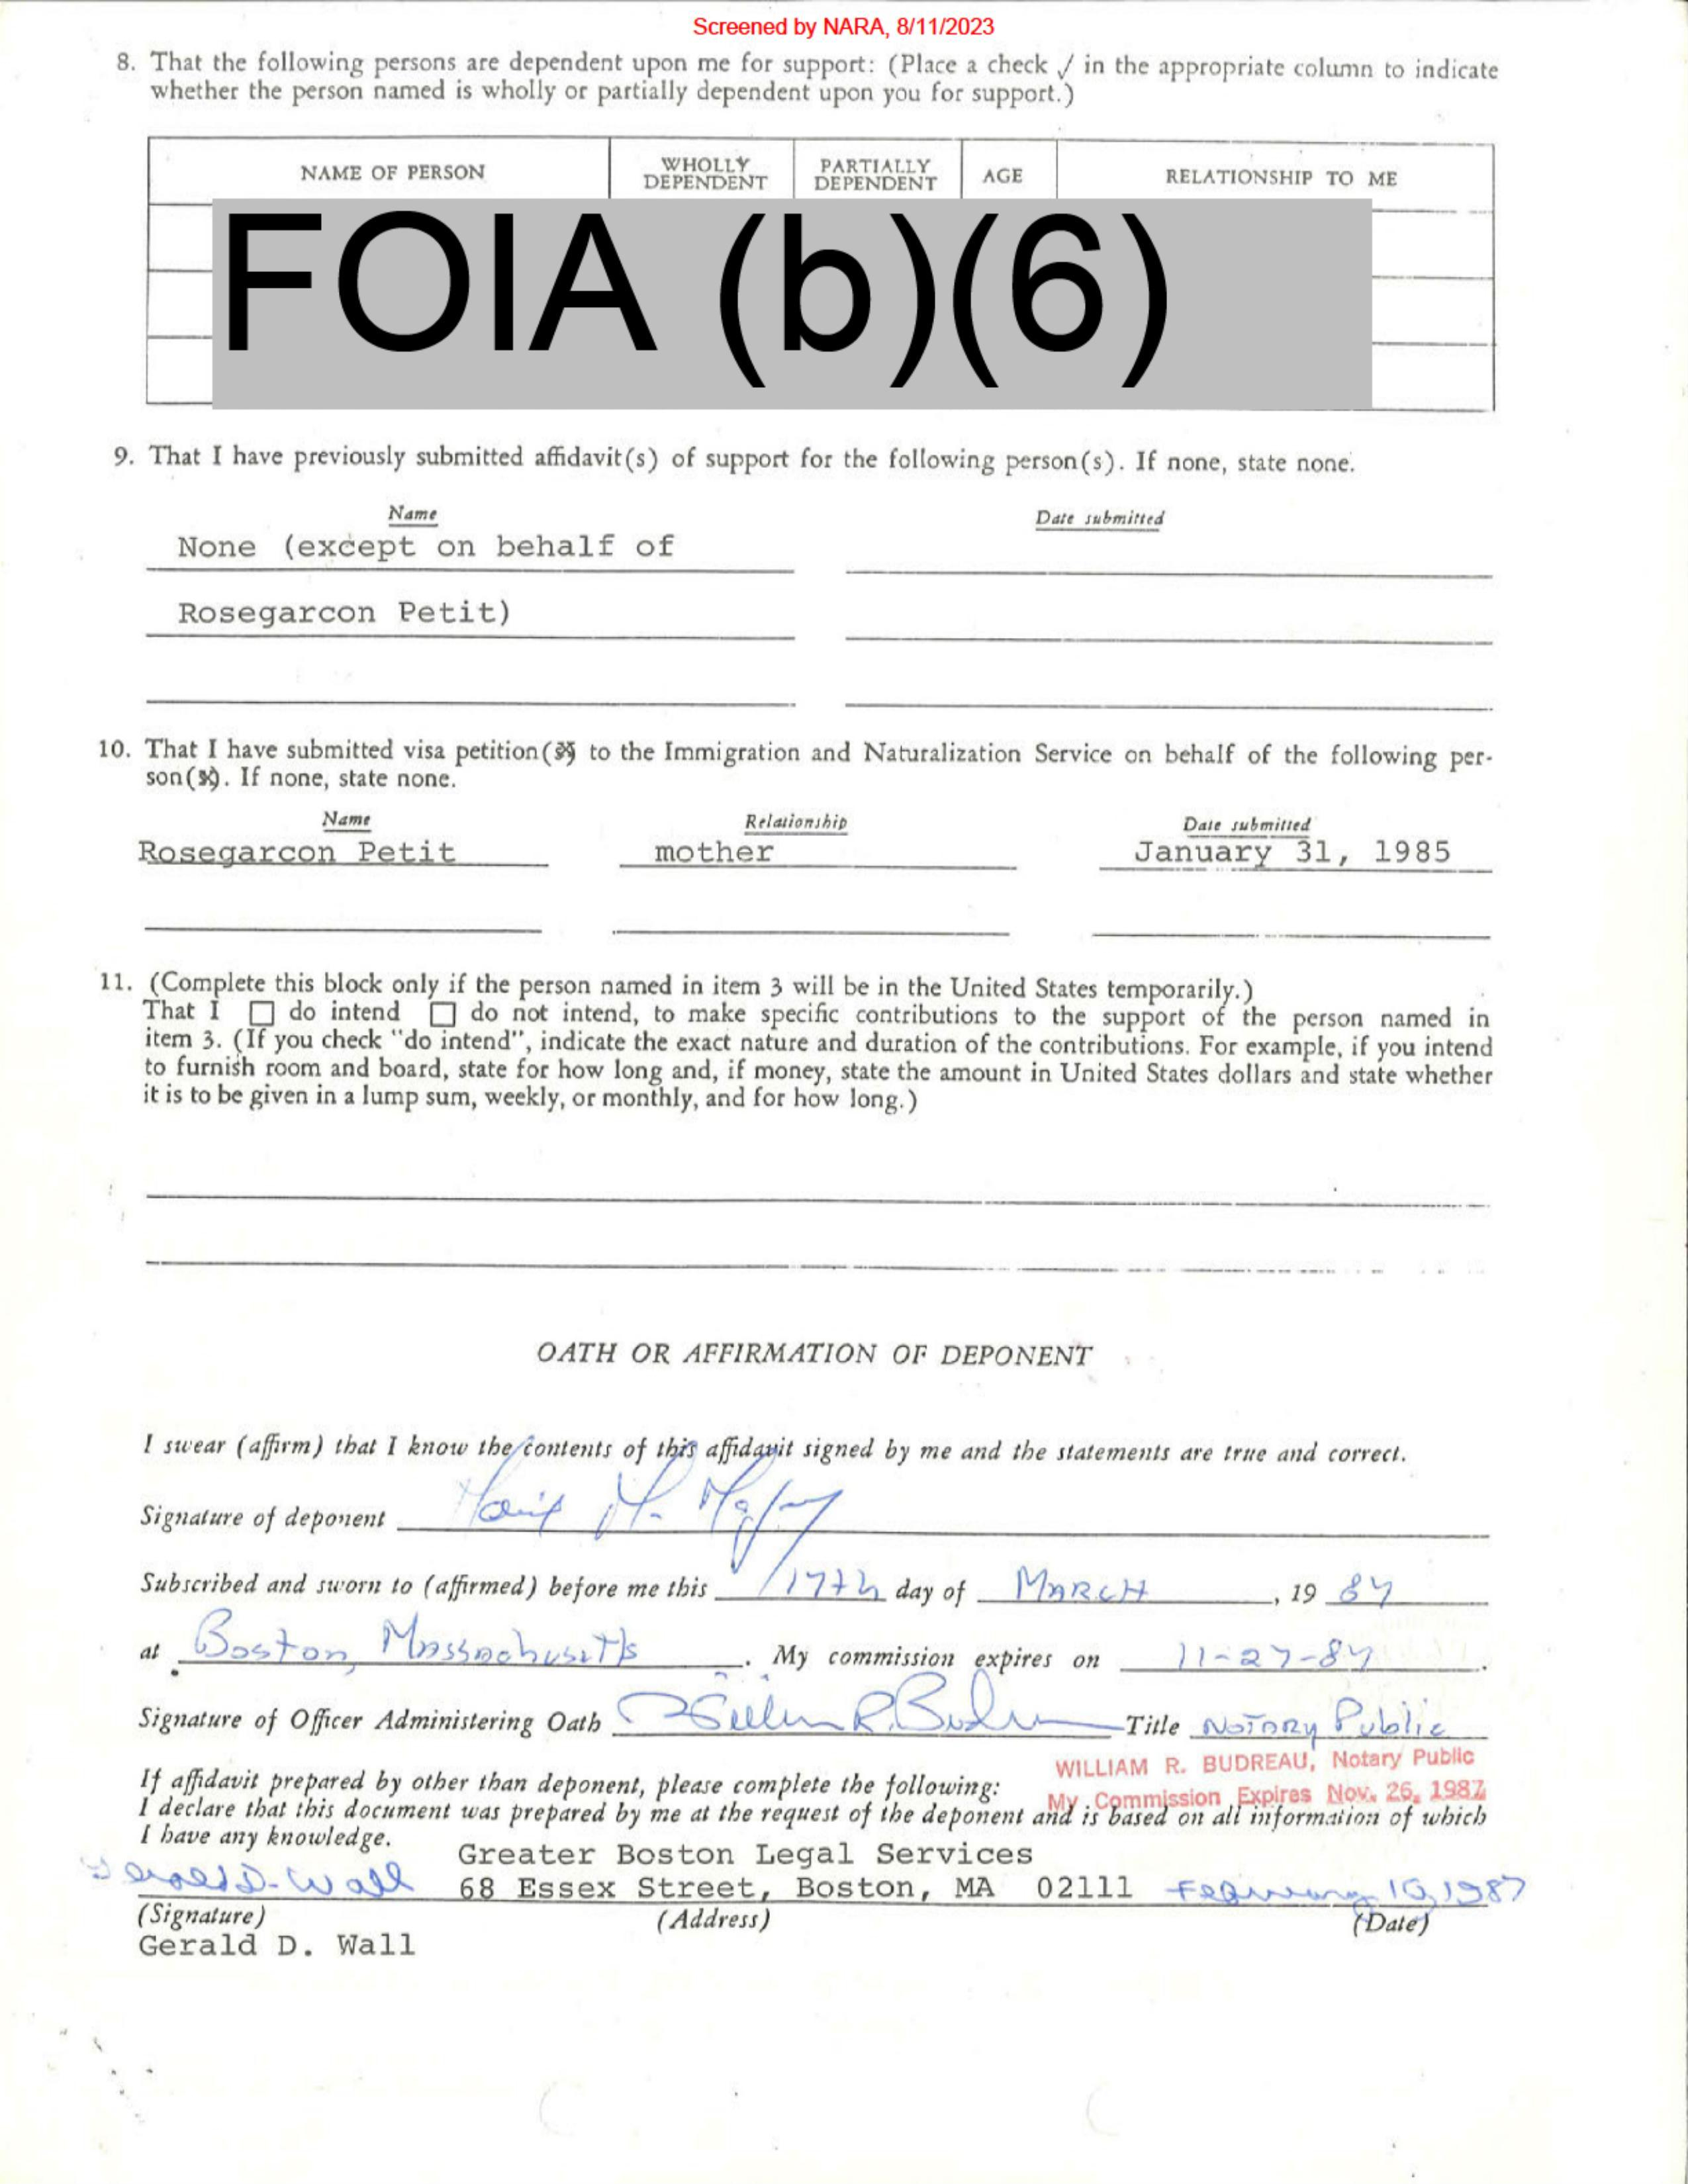 Screened by NARA, 8/11/2023
8. That the following persons are dependent upon me for support: (Place a check √ in the appropriate column to indicate
whether the person named is wholly or partially dependent upon you for support.)
NAME OF PERSON WHOLLY DEPENDENT PARTIALLY DEPENDENT AGE RELATIONSHIP TO ME
FOIA (b)(6)
9. That I have previously submitted affidavit(s) of support for the following person(s). If none, state none.
Name Date submitted
None (except on behalf of
Rosegarcon Petit)
10. That I have submitted visa petition( ) to the Immigration and Naturalization Service on behalf of the following per-
son( ). If none, state none.
Name Relationship Date submitted
Rosegarcon Petit mother January 31, 1985
11. (Complete this block only if the person named in item 3 will be in the United States temporarily.)
That I □ do intend □ do not intend, to make specific contributions to the support of the person named in
item 3. (If you check "do intend", indicate the exact nature and duration of the contributions. For example, if you intend
to furnish room and board, state for how long and, if money, state the amount in United States dollars and state whether
it is to be given in a lump sum, weekly, or monthly, and for how long.)
OATH OR AFFIRMATION OF DEPONENT
I swear (affirm) that I know the contents of this affidavit signed by me and the statements are true and correct.
Signature of deponent
Subscribed and sworn to (affirmed) before me this 17th day of MARCH, 19 87
at Boston, Massachusetts. My commission expires on 11-27-87.
Signature of Officer Administering Oath William R. Budreau Title Notary Public
WILLIAM R. BUDREAU, Notary Public
If affidavit prepared by other than deponent, please complete the following:
My Commission Expires Nov. 26, 1987
I declare that this document was prepared by me at the request of the deponent and is based on all information of which
I have any knowledge.
Greater Boston Legal Services
Gerald D. Wall 68 Essex Street, Boston, MA 02111 February 10, 1987
(Signature) (Address) (Date)
Gerald D. Wall